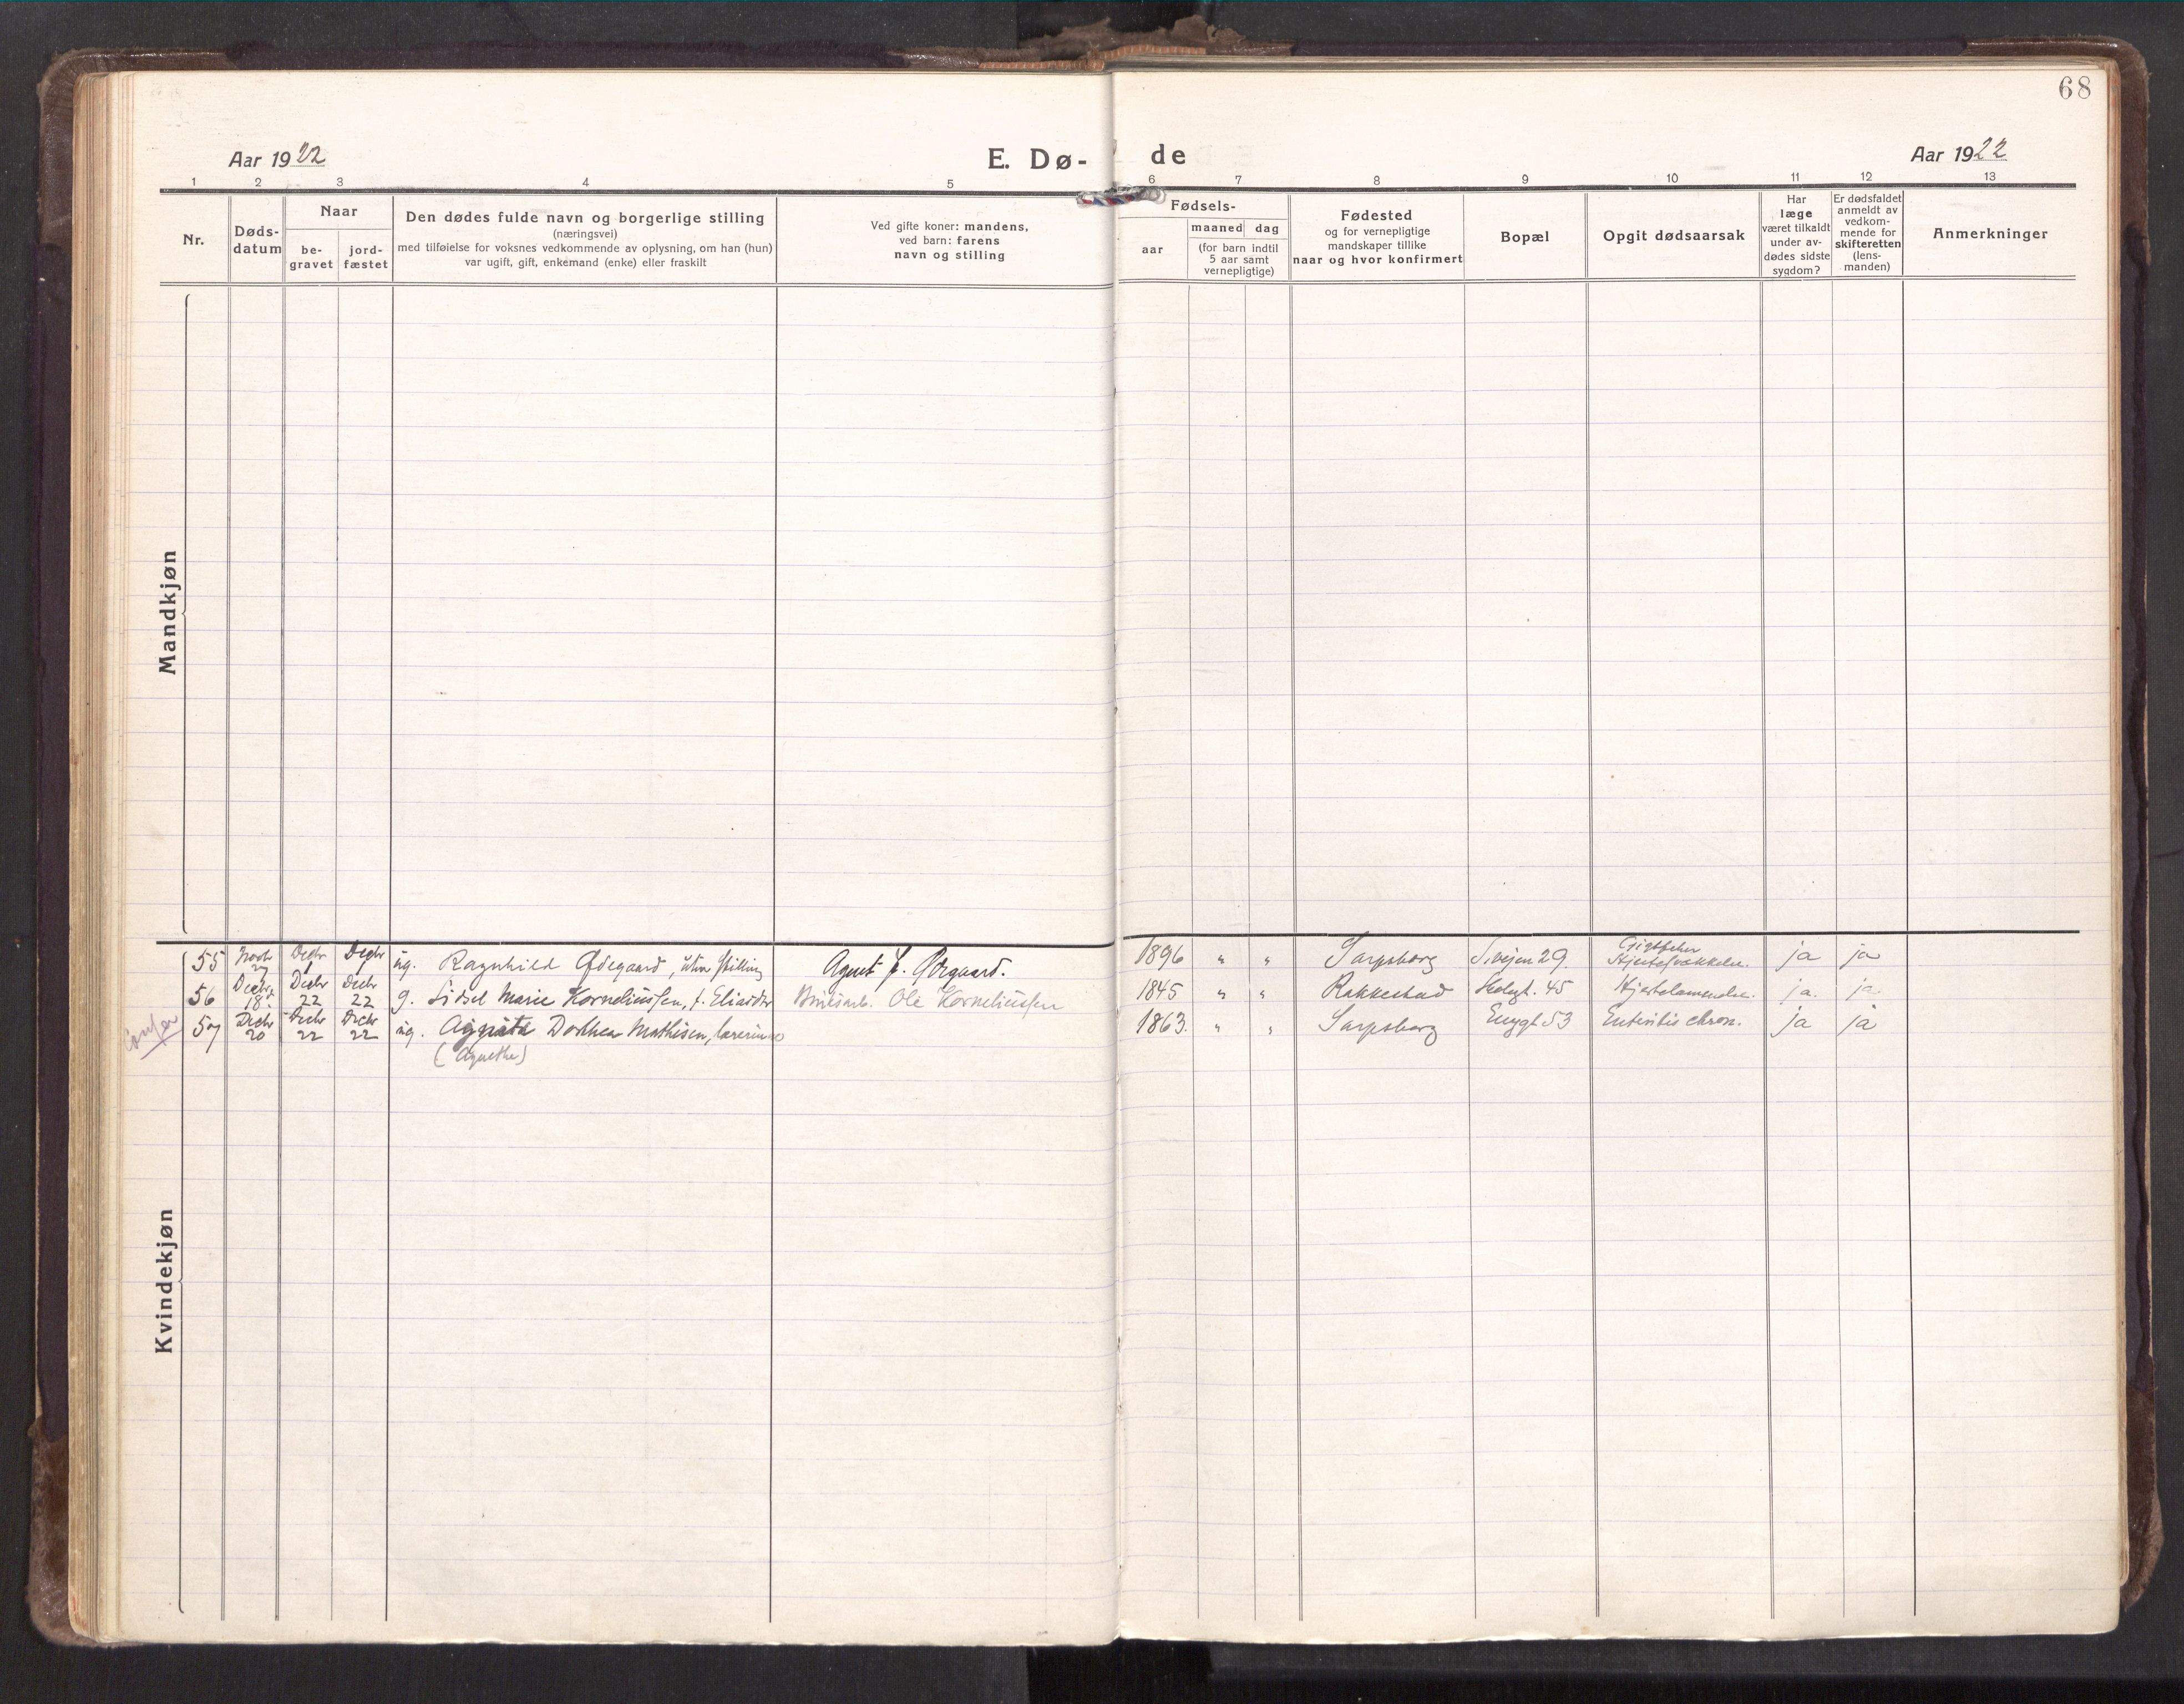 68
Aar 1922
E. Dø-
de
Aar 1922
1 2 3 4 5 6 7 8 9 10 11 12 13
Nr.
Døds-
datum
Naar
be-
gravet
jord-
fæstet
Den dødes fulde navn og borgerlige stilling
(næringsvei)
med tilføielse for voksnes vedkommende av oplysning, om han (hun)
var ugift, gift, enkemand (enke) eller fraskilt
Ved gifte koner: mandens,
ved barn: farens
navn og stilling
Fødsels-
aar
maaned dag
(for barn indtil
5 aar samt
vernepligtige)
Fødested
og for vernepligtige
mandskaper tillike
naar og hvor konfirmert
Bopæl
Opgit dødsaarsak
Har
læge
været tilkaldt
under av-
dødes sidste
sygdom?
Er dødsfaldet
anmeldt av
vedkom-
mende for
skifteretten
(lens-
manden)
Anmerkninger
Mandkjøn
Kvindekjøn
55 Novbr 27 Decbr 1 Decbr 1 ug. Ragnhild Ødegaard, uten stilling Agent Ødegaard. 1896 " " Sarpsborg S.vejen 29. Gigtfeber Hjertesvækkelse. ja ja
56 Decbr 18. Decbr 22 Decbr 22 g. Lidsel Marie Korneliussen, f. Eliasdtr Ole Korneliussen 1845 " " Rakkestad 45 Hjertelammelse. ja. ja
57 Decbr 20 Decbr 22 Decbr 22 ug. Dorthea Mathisen, lærerinde 1863. " " Sarpsborg Enggt 53 Enteritis chron. ja ja
(Agnethe)